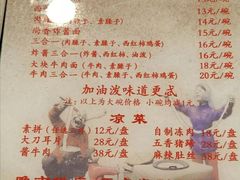 13元/碗
(肉臊子、素臊子)
14元/碗
尚香炸酱面
15元/碗
三合一(肉臊子、素臊子、西红柿鸡蛋)
16元/碗
炸酱三合一(肉、西红柿、油泼)
16元/碗
大块牛肉面
18元/碗
牛肉三合一(牛肉、肉臊子、西红柿鸡蛋)
20元/碗
加油泼味道更忒
注:以上为大碗价格 小碗均减1元
凉菜
素拼(任选三样)12元/盘
自制冻肉 38元/盘
大刀耳片 38元/盘
五香猪蹄 28元/盘
酱牛肉 38元/盘
麻辣肚丝 28元/盘